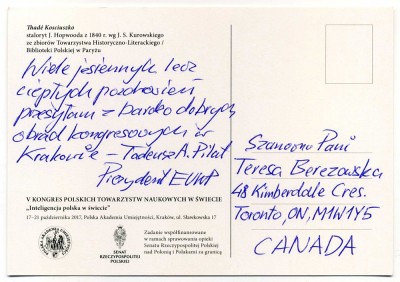 Thadé Kosciuszko
staloryt J. Hopwooda z 1840 r. wg J. S. Kurowskiego
ze zbiorów Towarzystwa Historyczno-Literackiego /
Biblioteki Polskiej w Paryżu
Wiele jesiennych lecz
ciepłych pozdrowień
przesyłam z bardzo dobrych
obrad kongresowych w
Krakowie – Tadeusz A. Pilat
Prezydent EUWP
V KONGRES POLSKICH TOWARZYSTW NAUKOWYCH W ŚWIECIE
„Inteligencja polska w świecie"
17–21 października 2017, Polska Akademia Umiejętności, Kraków, ul. Sławkowska 17
SENAT
RZECZYPOSPOLITEJ
POLSKIEJ
Zadanie współfinansowane
w ramach sprawowania opieki
Senatu Rzeczypospolitej Polskiej
nad Polonią i Polakami za granicą
Szanowna Pani
Teresa Berezowska
48 Kimberdale Cres.
Toronto, ON, M1W1Y5
CANADA